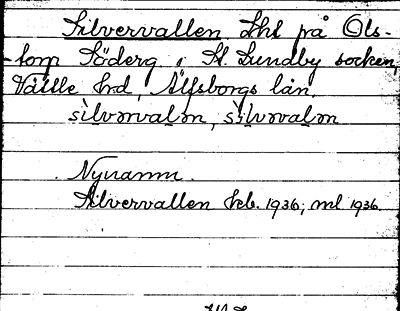 Silvervallen. Lht på Ols-
-torp Söderg. i St. Lundby socken,
Vättle hrd, Älfsborgs län.
silvərvalən, silvərvalən
Nynamn.
Silvervallen kb. 1936; ml 1936.